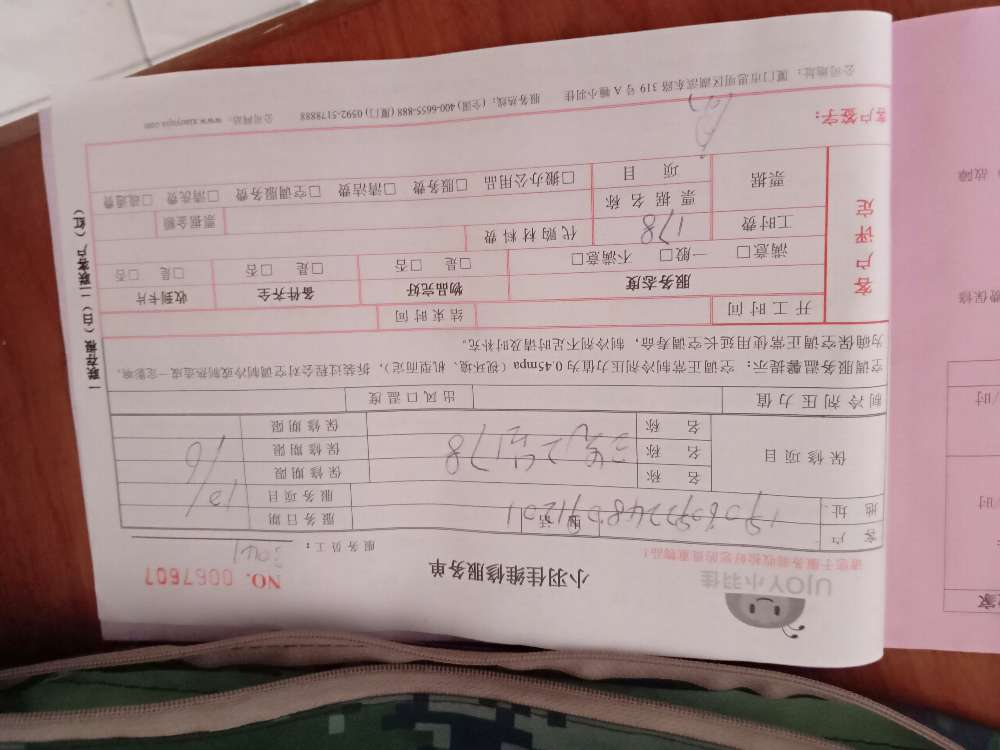 UJOY小羽佳
请您于服务前收拾好您的贵重物品!
小羽佳维修服务单
NO. 0067607
服务员工:
客户
电话
服务日期
地址:
服务项目
保修项目
名称
保修期限
名称
保修期限
名称
保修期限
178
制冷剂压力值
出风口温度
空调服务温馨提示: 空调正常制冷剂压力值为0.45mpa (视环境、机型而定), 拆装过程会对空调制冷或制热造成一定影响,
为确保空调正常使用延长空调寿命, 制冷剂不足时请及时补充。
客户评定
开工时间
结束时间
服务态度
物品完好
备件齐全
收到卡片
满意□ 一般□ 不满意□
□是 □否
□是 □否
□是 □否
工时费
178
代购材料费
票据
票据名称
票据金额
项目
□搬办公用品 □服务费 □清洁费 □空调服务费 □清洗费 □疏通费
客户签字:
公司地址: 厦门市思明区湖滨东路319号A幢小羽佳 服务热线: (全国) 400-6655-888 (厦门) 0592-5178888 公司网站: www.xiaoyujia.com
一联存根 (白) 二联客户 (红)